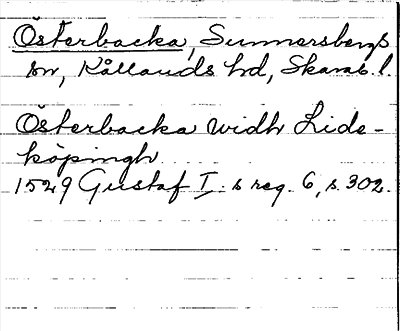 Österbacka, Sunnersbergs
sn, Kållands hd, Skarab. l.
Österbacka widh Lide-
köpingh
1529 Gustaf I. s reg. 6, s. 302.